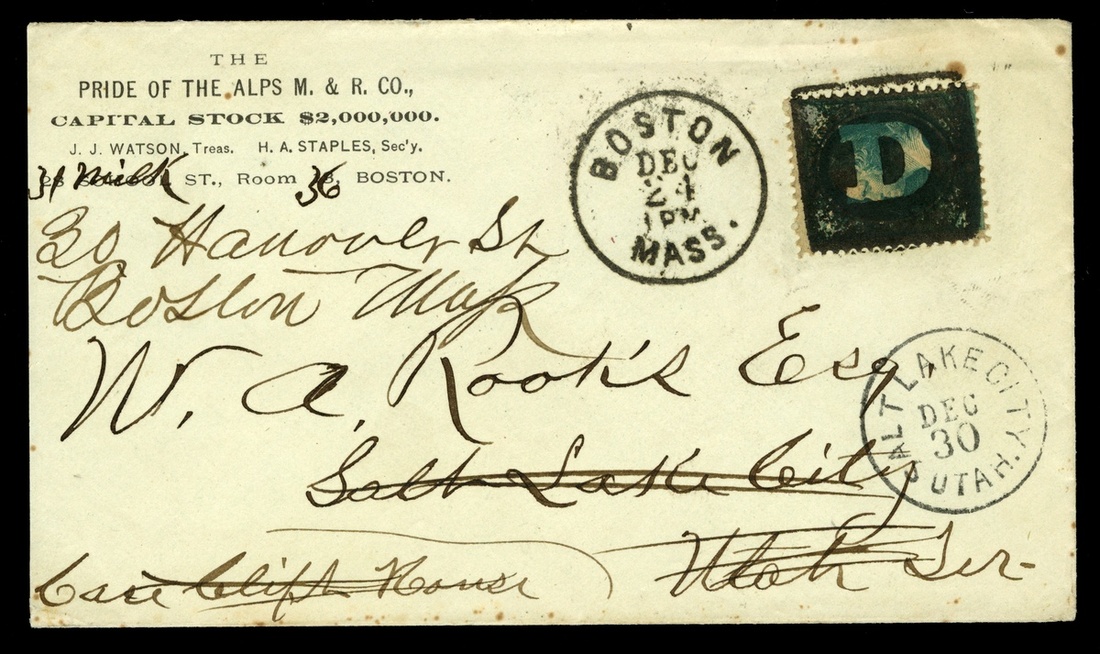 THE
PRIDE OF THE ALPS M. & R. CO.,
CAPITAL STOCK $2,000,000.
J. J. WATSON, Treas. H. A. STAPLES, Sec'y.
31 Milk ST., Room 36, BOSTON.
30 Hanover St
Boston Mass
W. A. Rooks Esq,
Salt Lake City
Utah Ter-
Care Clift House
BOSTON
DEC
24
1 PM
MASS.
D
SALT LAKE CITY
DEC
30
UTAH.